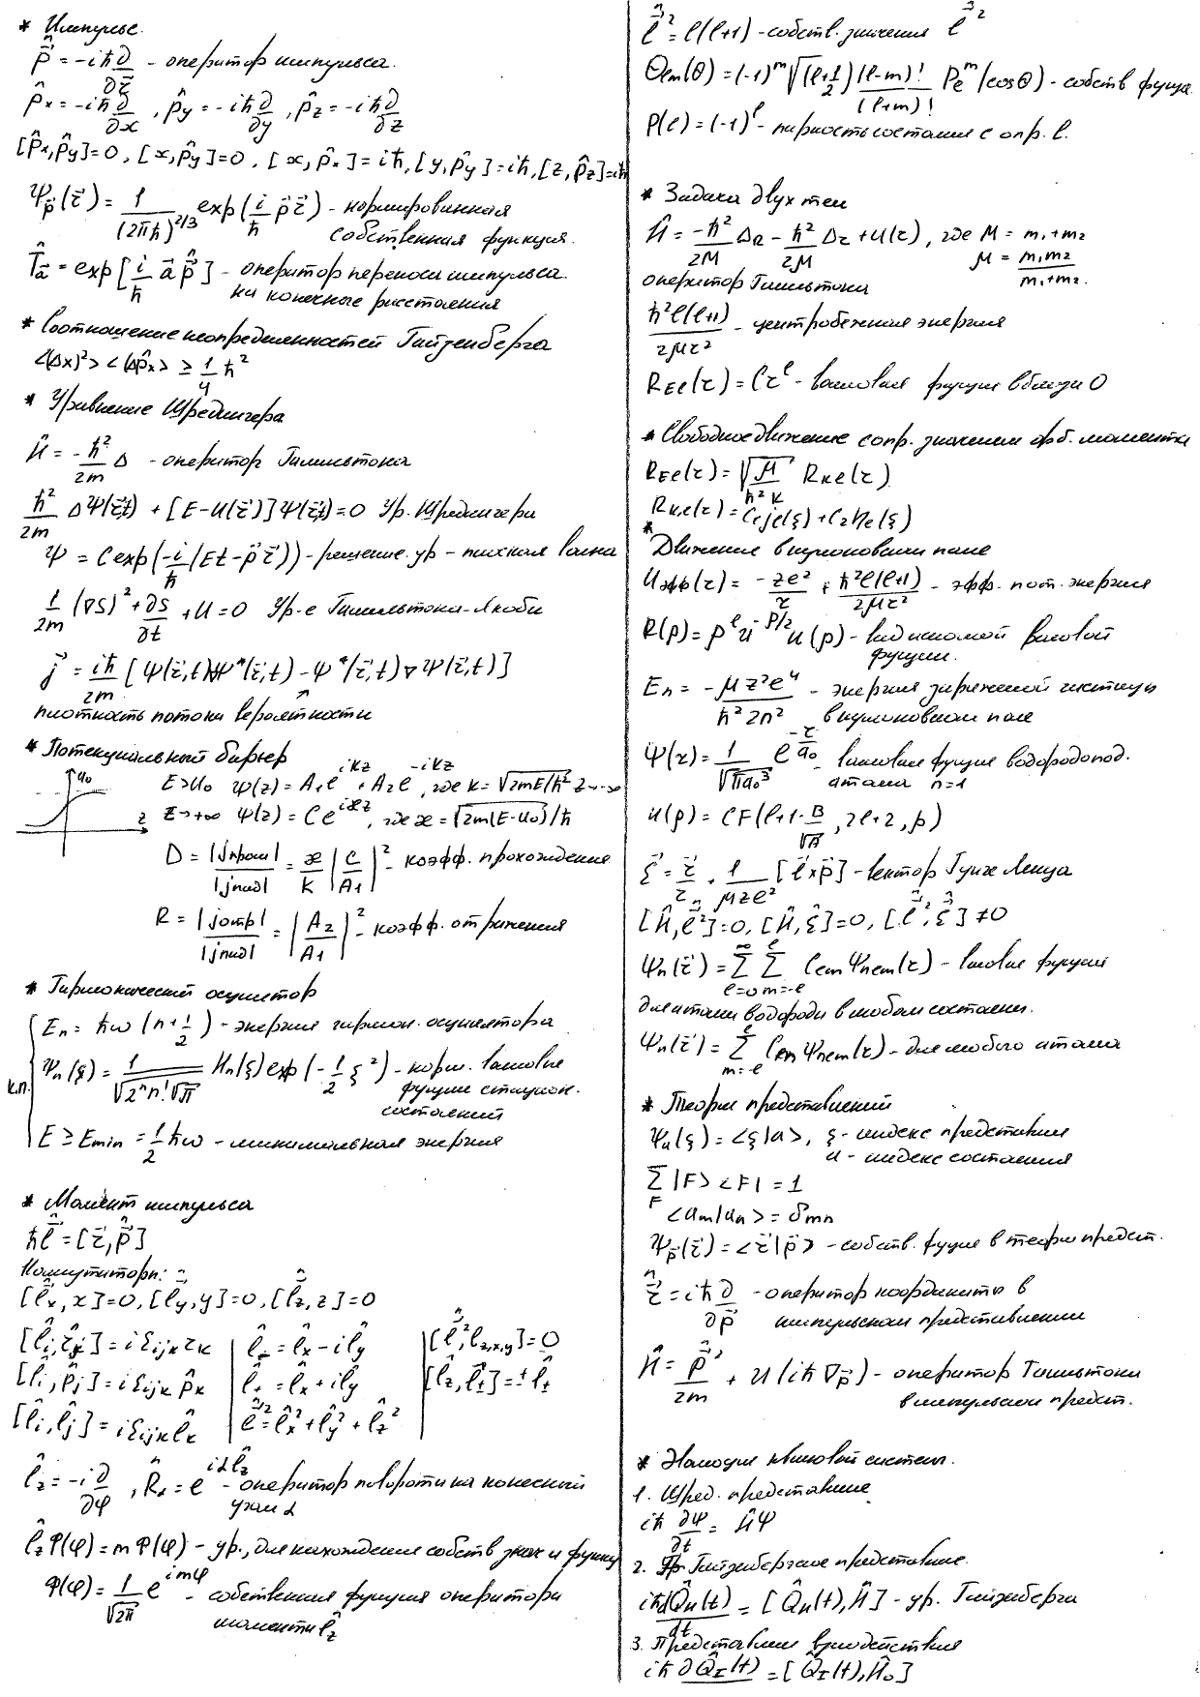 * Импульс.
p̂⃗ = -iħ ∂/∂r⃗ - оператор импульса.
p̂x = -iħ ∂/∂x , p̂y = -iħ ∂/∂y , p̂z = -iħ ∂/∂z
[p̂x, p̂y]=0, [x, p̂y]=0, [x, p̂x]=iħ, [y, p̂y]=iħ, [z, p̂z]=iħ
Ψp⃗(r⃗) = 1/(2πħ)^2/3 exp(i/ħ p⃗ r⃗) - нормированная
собственная функция.
T̂a⃗ = exp[i/ħ a⃗ p̂⃗] - оператор переноса импульса.
на конечные расстояния
* Соотношение неопределенностей Гейзенберга
<(Δx)²> <(Δp̂x> ≥ 1/4 ħ²
* Уравнение Шредингера
Ĥ = -ħ²/2m Δ - оператор Гамильтона
ħ²/2m ΔΨ(r⃗,t) + [E-U(r⃗)]Ψ(r⃗,t)=0 Ур. Шредингера
Ψ = C exp(-i/ħ (Et - p⃗ r⃗)) - решение ур - плоская волна
1/2m (∇S)² + ∂S/∂t + U = 0 Ур-е Гамильтона-Якоби
j⃗ = iħ/2m [Ψ(r⃗,t)∇Ψ*(r⃗,t) - Ψ*(r⃗,t)∇Ψ(r⃗,t)]
плотность потока вероятности
* Потенциальный барьер
U₀ E>U₀ ψ(z) = A₁e^ikz + A₂e^-ikz, где k = √2mE/ħ² z→-∞
z z→+∞ ψ(z) = Ce^iæz, где æ = √2m(E-U₀)/ħ
D = |jпрош|/|jпад| = æ/k |C/A₁|² - коэфф. прохождения
R = |jотр|/|jпад| = |A₂/A₁|² - коэфф. отражения
* Гармонический осциллятор
En = ħω (n+1/2) - энергия гармон. осциллятора
к.п. Ψn(ξ) = 1/√2ⁿn!√π Hn(ξ)exp(-1/2 ξ²) - норм. волновые
функции стацион.
состояний
E ≥ Emin = 1/2 ħω - минимальная энергия
* Момент импульса
ħl̂⃗ = [r⃗, p̂⃗]
Коммутаторы:
[l̂x, x]=0, [l̂y, y]=0, [l̂z, z]=0
[l̂i, rj] = iεijk rk | l̂- = l̂x - il̂y | [l̂⃗², lz,x,y] = 0
[l̂i, p̂j] = iεijk p̂k | l̂+ = l̂x + il̂y | [l̂z, l̂±] = ±l̂±
[l̂i, l̂j] = iεijk l̂k | l̂⃗² = l̂x² + l̂y² + l̂z²
l̂z = -i ∂/∂φ , R̂α = e^iαl̂z - оператор поворота на конечный
угол α
l̂zΦ(φ) = mΦ(φ) - ур., для нахождения собств знач и функц
Φ(φ) = 1/√2π e^imφ - собственная функция оператора
момента l̂z
l̂⃗² = l(l+1) - собств. значения l̂⃗²
Θlm(θ) = (-1)^m √(l+1/2) (l-m)!/(l+m)! Pl^m (cosθ) - собств функц.
P(l) = (-1)^l - парность состояния с опр. l.
* Задача двух тел
Ĥ = -ħ²/2M ΔR - ħ²/2μ Δr + U(r), где M = m₁+m₂
μ = m₁m₂/m₁+m₂.
оператор Гамильтона
ħ²l(l+1)/2μr² - центробежная энергия
REl(r) = Cr^l - волновая функция вблизи 0
* Свободное движение с опр. значением орб. момента
REl(r) = √μ/ħ²k Rkl(r)
Rkl(r) = C₁jl(ξ) + C₂nl(ξ)
*
Движение в кулоновском поле
Uэфф(r) = -ze²/r + ħ²l(l+1)/2μr² - эфф. пот. энергия
R(ρ) = ρ^l e^-ρ/2 u(ρ) - вид искомой волновой
функции.
En = -μz²e⁴/ħ²2n² - энергия заряженной частицы
в кулоновском поле
Ψ(r) = 1/√πa₀³ e^-r/a₀ - волновая функция водородопод.
атома n=1
u(ρ) = CF(l+1-B/√A, 2l+2, ρ)
ξ⃗ = r⃗/r + 1/μze² [l⃗×p⃗] - вектор Рунге Ленца
[Ĥ, l̂⃗²]=0, [Ĥ, ξ̂]=0, [l̂⃗², ξ̂] ≠0
Ψn(r⃗) = Σ(l=0, ∞) Σ(m=-l, l) Clm Ψnlm(r) - волновые функции
для атома водорода в любом состоянии.
Ψn(r⃗) = Σ(m=-l, l) Clm Ψnlm(r) - для любого атома
* Теория представлений
Ψa(ξ) = <ξ|a>, ξ - индекс представления
a - индекс состояния
Σ(F) |F> <F| = 1
<am|an> = δmn
Ψp⃗(r⃗) = <r⃗|p⃗> - собств. функция в теории предст.
r̂⃗ = iħ ∂/∂p⃗ - оператор координаты в
импульсном представлении
Ĥ = p⃗²/2m + U(iħ∇p⃗) - оператор Гамильтона
в импульсном предст.
* Эволюция квантовой системы.
1. Шред. представление
iħ ∂Ψ/∂t = ĤΨ
2. Гейзенбергское представление.
iħ dQ̂H(t)/dt = [Q̂H(t), Ĥ] - ур. Гейзенберга
3. Представление взаимодействия
iħ ∂Q̂I(t) = [Q̂I(t), Ĥ₀]